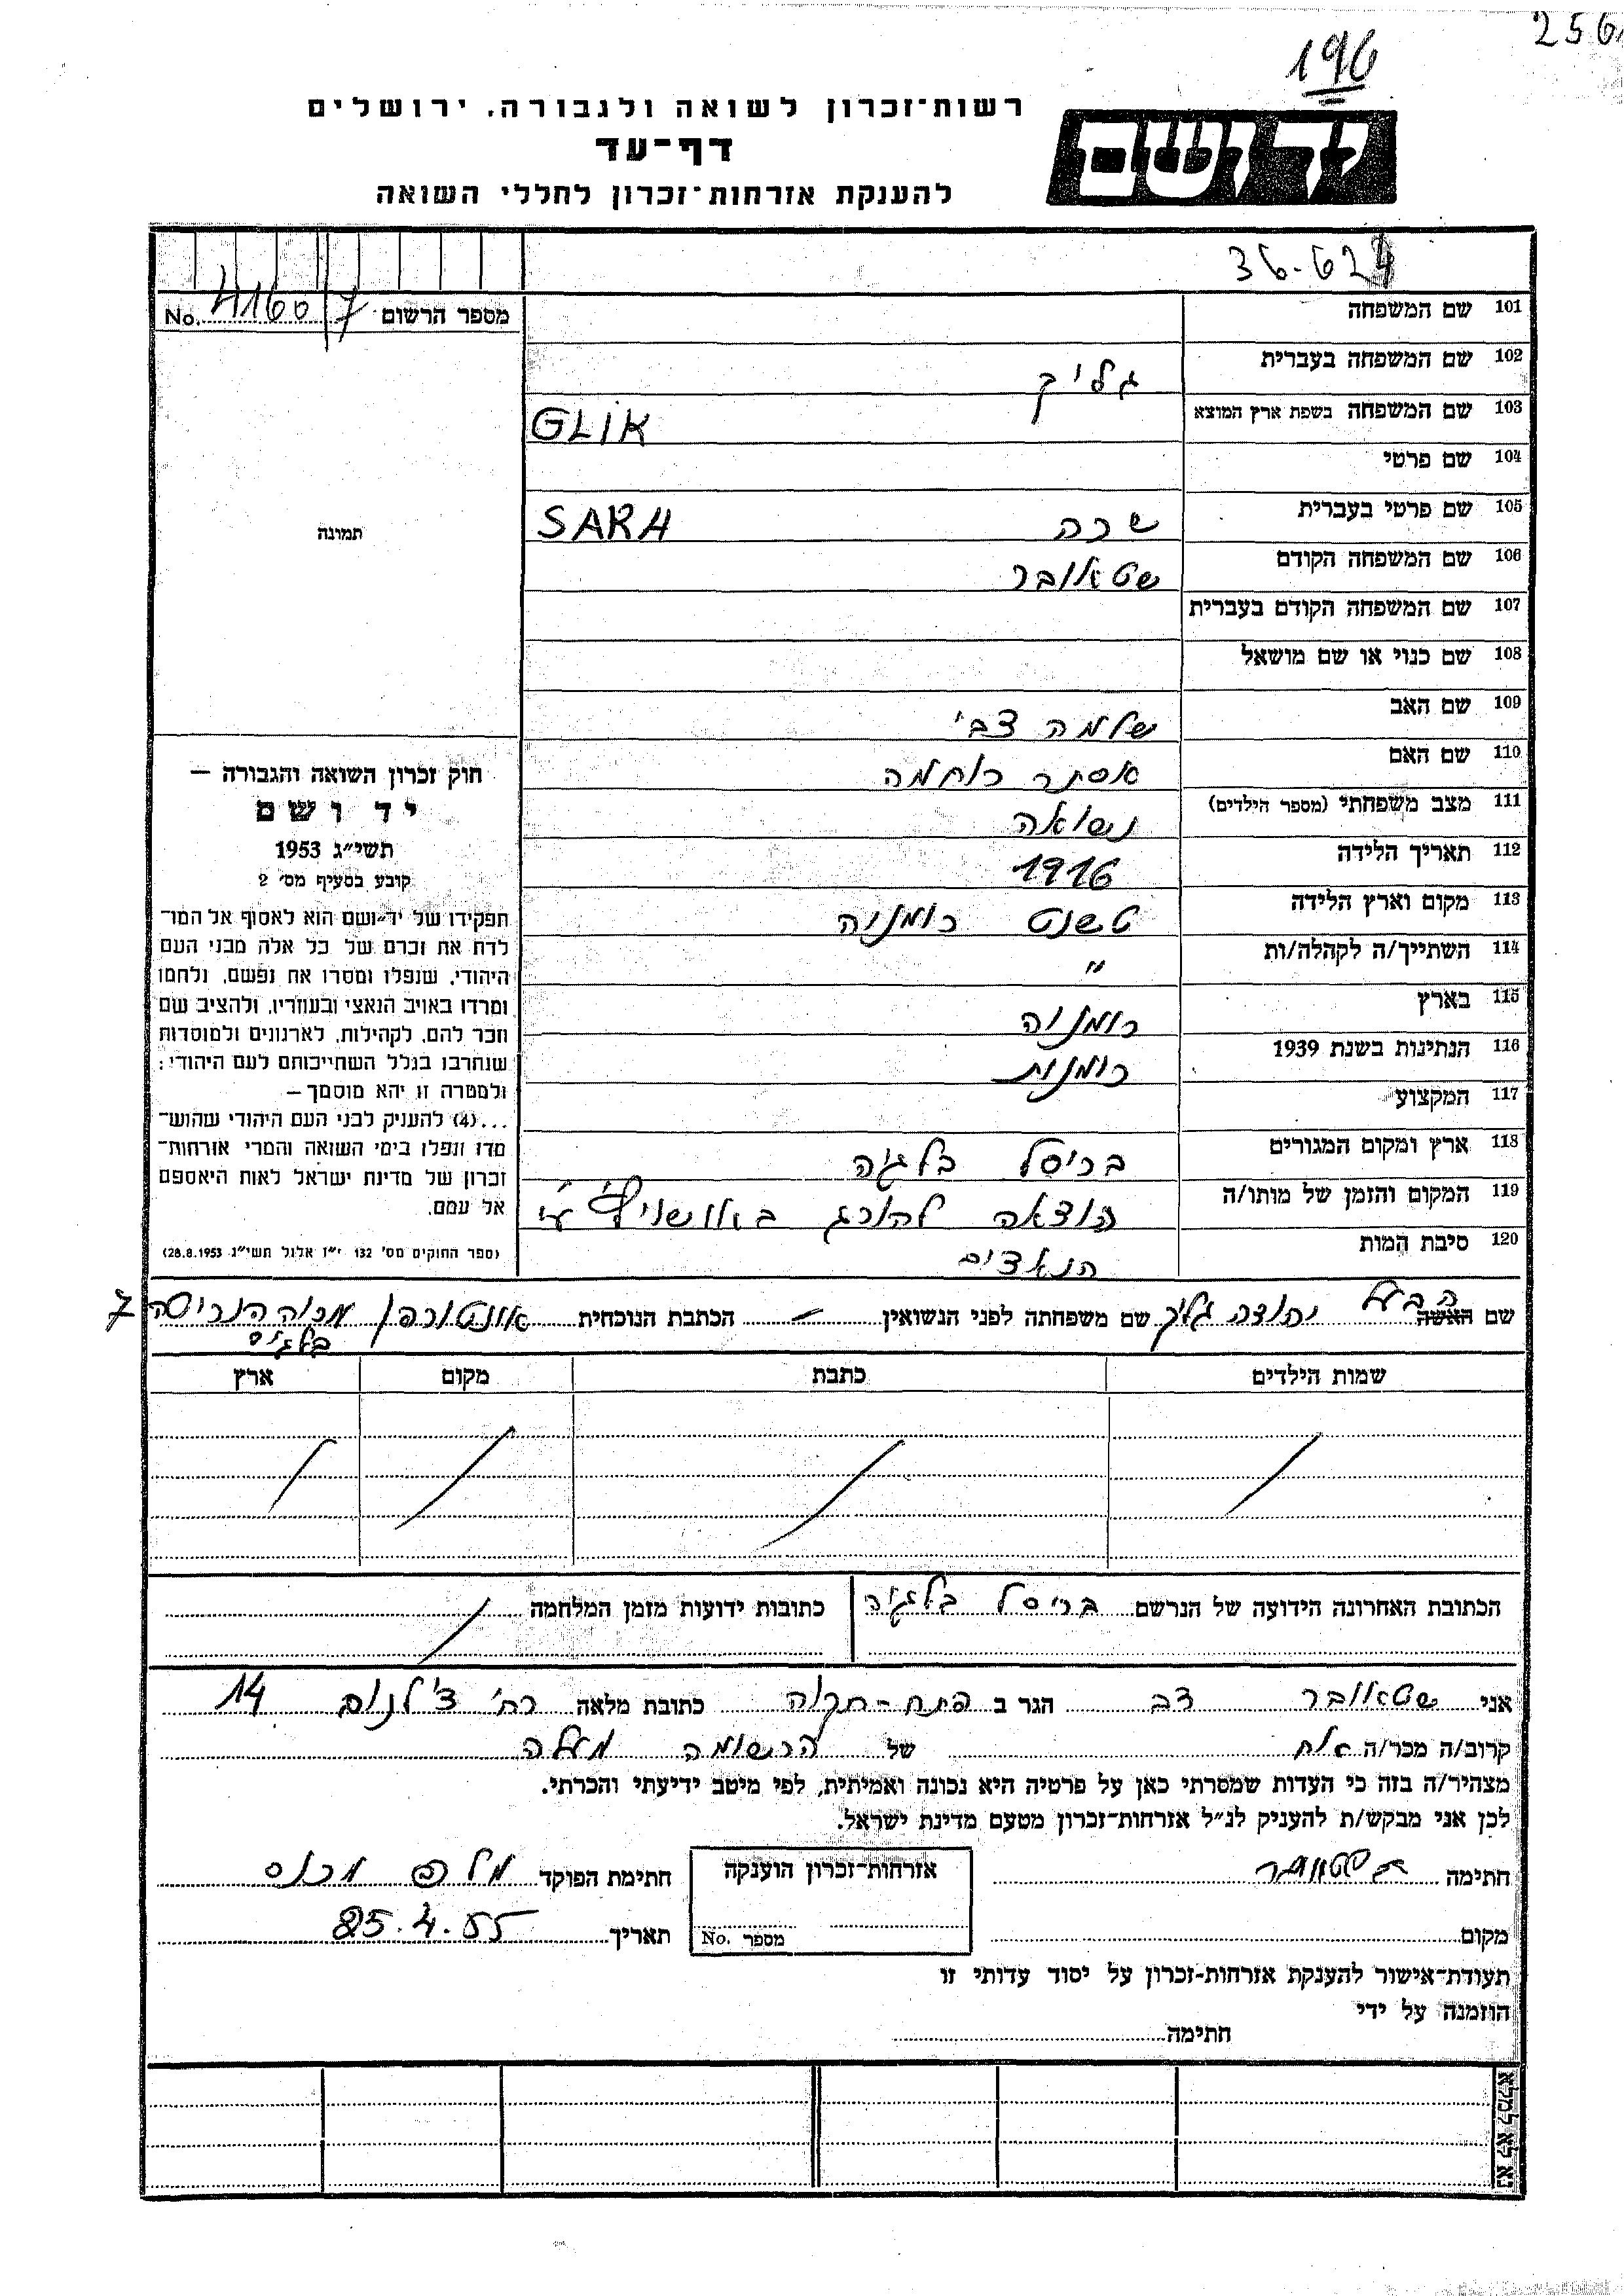 256
196
רשות־זכרון לשואה ולגבורה, ירושלים
דף־עד
להענקת אזרחות־זכרון לחללי השואה
יד ושם
36-624
מספר הרשום No. 4160/7
תמונה
101 שם המשפחה
102 שם המשפחה בעברית גליק
103 שם המשפחה בשפת ארץ המוצא GLIK
104 שם פרטי
105 שם פרטי בעברית שרה SARA
106 שם המשפחה הקודם שטאובר
107 שם המשפחה הקודם בעברית
108 שם כנוי או שם מושאל
109 שם האב שלמה צבי
110 שם האם אסתר רוחמה
111 מצב משפחתי (מספר הילדים) נשואה
112 תאריך הלידה 1916
113 מקום וארץ הלידה טשנט רומניה
114 השתייך/ה לקהלה/ות "
115 בארץ רומניה
116 הנתינות בשנת 1939 רומנית
117 המקצוע
118 ארץ ומקום המגורים בריסל בלגיה
119 המקום והזמן של מותו/ה הוצאה להורג באושויץ ע"י
120 סיבת המות הנאצים
חוק זכרון השואה והגבורה —
יד ושם
תשי״ג 1953
קובע בסעיף מס׳ 2
תפקידו של יד־ושם הוא לאסוף אל המו־
לדת את זכרם של כל אלה מבני העם
היהודי, שנפלו ומסרו את נפשם, נלחמו
ומרדו באויב הנאצי ובעוזריו, ולהציב שם
וזכר להם, לקהילות, לארגונים ולמוסדות
שנחרבו בגלל השתייכותם לעם היהודי;
ולמטרה זו יהא מוסמך —
...(4) להעניק לבני העם היהודי שהוש־
מדו ונפלו בימי השואה והמרי אזרחות־
זכרון של מדינת ישראל לאות היאספם
אל עמם.
(ספר החוקים מס׳ 132 י״ז אלול תשי״ג 28.8.1953)
הבעל
שם האשה יהודה גליק שם משפחתה לפני הנשואין — הכתבת הנוכחית אנטורפן 7
בלגיה
שמות הילדים כתבת מקום ארץ
הכתובת האחרונה הידועה של הנרשם בריסל בלגיה כתובות ידועות מזמן המלחמה
אני שטאובר צבי הגר ב פתח-תקוה כתובת מלאה רח' צ'לנוב 14
קרוב/ה מכר/ה אח של הרשומה מעלה
מצהיר/ה בזה כי העדות שמסרתי כאן על פרטיה היא נכונה ואמיתית, לפי מיטב ידיעתי והכרתי.
לכן אני מבקש/ת להעניק לנ״ל אזרחות־זכרון מטעם מדינת ישראל.
חתימה שטאובר אזרחות־זכרון הוענקה חתימת הפוקד
מקום מספר No. תאריך 25.4.55
תעודת־אישור להענקת אזרחות-זכרון על יסוד עדותי זו
הוזמנה על ידי
חתימה
נא לא למלא